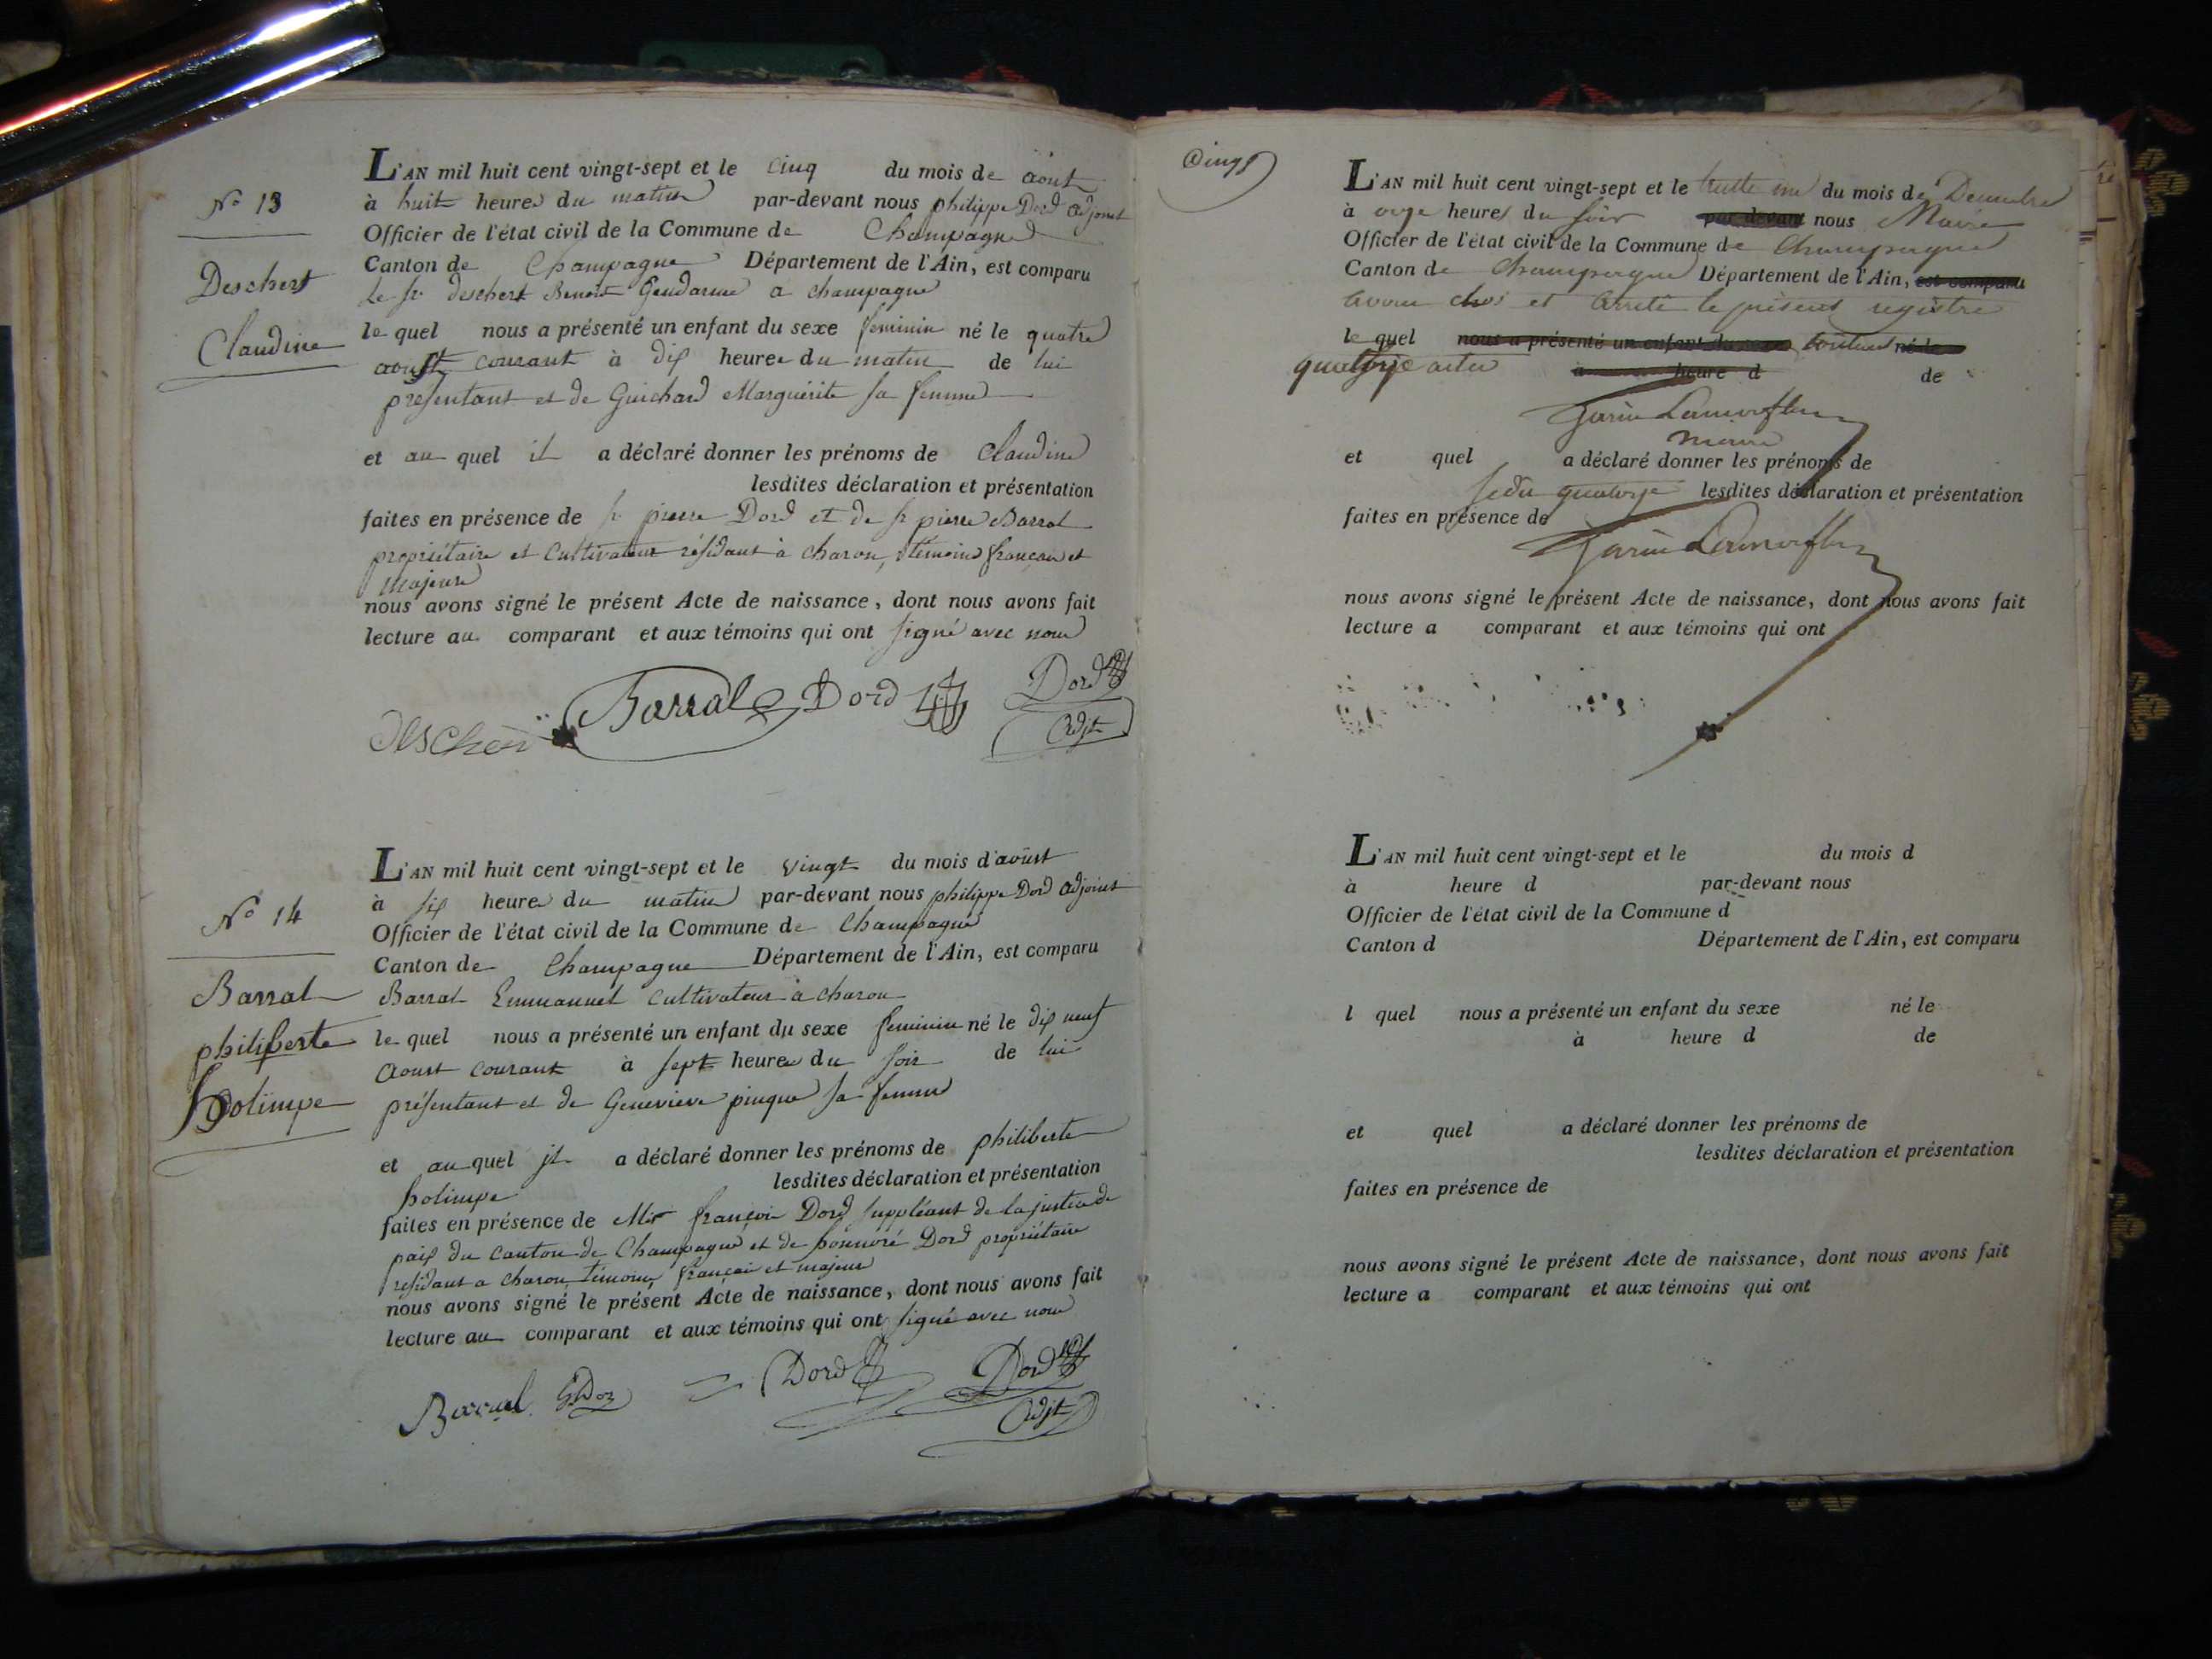 N° 13
Deschert
Claudine
L'AN mil huit cent vingt-sept et le cinq du mois de aout
à huit heures du matin par-devant nous philippe Dord adjoint
Officier de l'état civil de la Commune de Champagne
Canton de Champagne Département de l'Ain, est comparu
Le sr deschert Benoit Gendarme a champagne
le quel nous a présenté un enfant du sexe feminin né le quatre
aoust courant à dix heures du matin de lui
presentant et de Guichard Marguérite sa femme
et au quel il a déclaré donner les prénoms de Claudine
lesdites déclaration et présentation
faites en présence de sr pierre Dord et de sr pierre Barral
propriétaire et Cultivateur résidant à charon, témoins français et
majeurs
nous avons signé le présent Acte de naissance, dont nous avons fait
lecture au comparant et aux témoins qui ont signé avec nous
Barral Dord Dord
Adjt
N° 14
Barral
philiberte
holimpe
L'AN mil huit cent vingt-sept et le vingt du mois d'aoust
à six heures du matin par-devant nous philippe Dord adjoint
Officier de l'état civil de la Commune de Champagne
Canton de Champagne Département de l'Ain, est comparu
Barral Emmanuel cultivateur à charon
le quel nous a présenté un enfant du sexe feminin né le dix neuf
aoust courant à sept heures du soir de lui
présentant et de Genevieve pinque sa femme
et au quel jl a déclaré donner les prénoms de philiberte
holimpe lesdites déclaration et présentation
faites en présence de Mr françois Dord suppléant de la justice de
paix du canton de Champagne et de honnoré Dord propriétaire
résidant a charon, témoins français et majeurs
nous avons signé le présent Acte de naissance, dont nous avons fait
lecture au comparant et aux témoins qui ont signé avec nous
Barral Dord Dord
Adjt
L'AN mil huit cent vingt-sept et le trente un du mois de Decembre
à onze heures du soir par-devant nous Maire
Officier de l'état civil de la Commune de Champagne
Canton de Champagne Département de l'Ain, est comparu
avons clos et arreté le présent registre
le quel nous a présenté un enfant du sexe contenant né le
quatorze actes à heure d de
maire
et quel a déclaré donner les prénoms de
quatorze lesdites déclaration et présentation
faites en présence de
nous avons signé le présent Acte de naissance, dont nous avons fait
lecture a comparant et aux témoins qui ont
L'AN mil huit cent vingt-sept et le du mois d
à heure d par-devant nous
Officier de l'état civil de la Commune d
Canton d Département de l'Ain, est comparu
l quel nous a présenté un enfant du sexe né le
à heure d de
et quel a déclaré donner les prénoms de
lesdites déclaration et présentation
faites en présence de
nous avons signé le présent Acte de naissance, dont nous avons fait
lecture a comparant et aux témoins qui ont